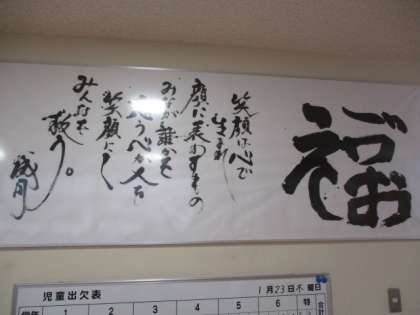 笑顔は心で
生まれ
顔に表われるもの
みなが誰かを
思う心が人を
笑顔にし
みんなを
救う。
児童出欠表
1月23日木曜日
学年 1 2 3 4 5 6 特 合計